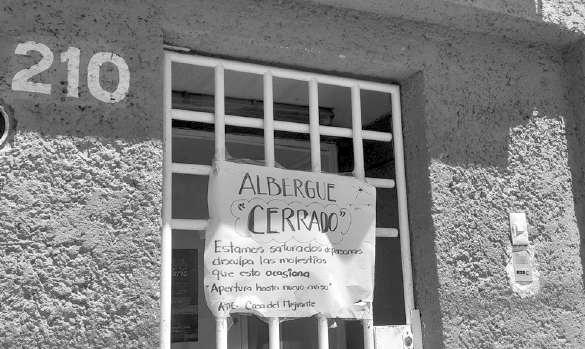 210
ALBERGUE
"CERRADO"
Estamos saturados de personas
disculpa las molestias
que esto ocasiona
"Apertura hasta nuevo aviso"
ATE: Casa del Migrante